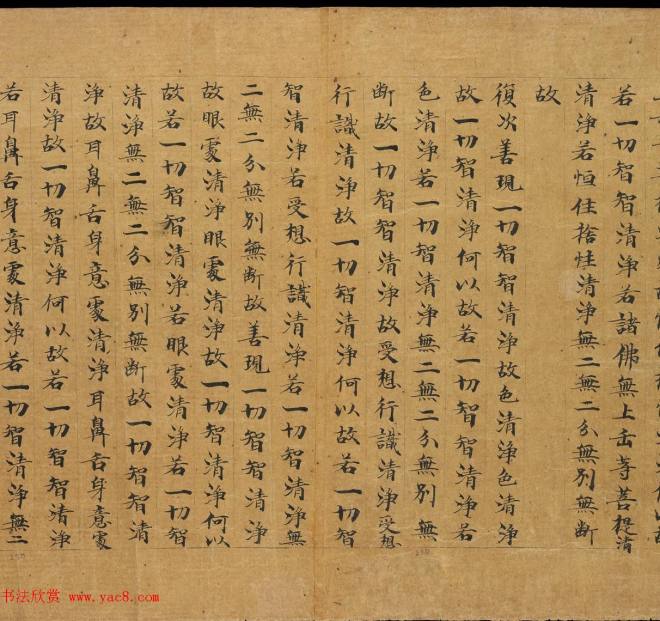 若一切智智清淨若諸佛無上正等菩提清
清淨若恒住捨性清淨無二無二分無別無斷
故
復次善現一切智智清淨故色清淨色清淨
故一切智智清淨何以故若一切智智清淨若
色清淨若一切智智清淨無二無二分無別無
斷故一切智智清淨故受想行識清淨受想
行識清淨故一切智智清淨何以故若一切智
智清淨若受想行識清淨若一切智智清淨無
二無二分無別無斷故善現一切智智清淨
故眼處清淨眼處清淨故一切智智清淨何以
故若一切智智清淨若眼處清淨若一切智
清淨無二無二分無別無斷故一切智智清
淨故耳鼻舌身意處清淨耳鼻舌身意處
清淨故一切智智清淨何以故若一切智智清淨
若耳鼻舌身意處清淨若一切智智清淨無二
书法欣赏 www.yac8.com